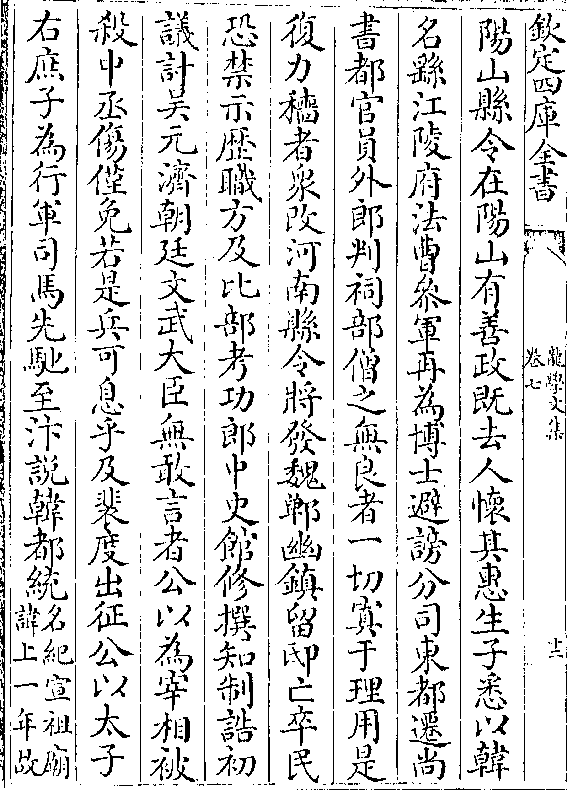 欽定四庫全書
龍學文集
卷七
十二
陽山縣令在陽山有善政既去人懷其惠生子悉以韓
名縣江陵府法曹叅軍再為博士避謗分司東都遷尚
書都官員外郎判祠部僧之無良者一切寘于理用是
復力穡者衆改河南縣令將發魏鄆幽鎮留邸亡卒民
恐禁示歴職方及比部考功郎中史館修撰知制誥初
議討吴元濟朝廷文武大臣無敢言者公以為宰相被
殺中丞傷僅免若是兵可息乎及裴度出征公以太子
右庶子為行軍司馬先馳至汴説韓都統名紀宣祖廟
諱上一年故